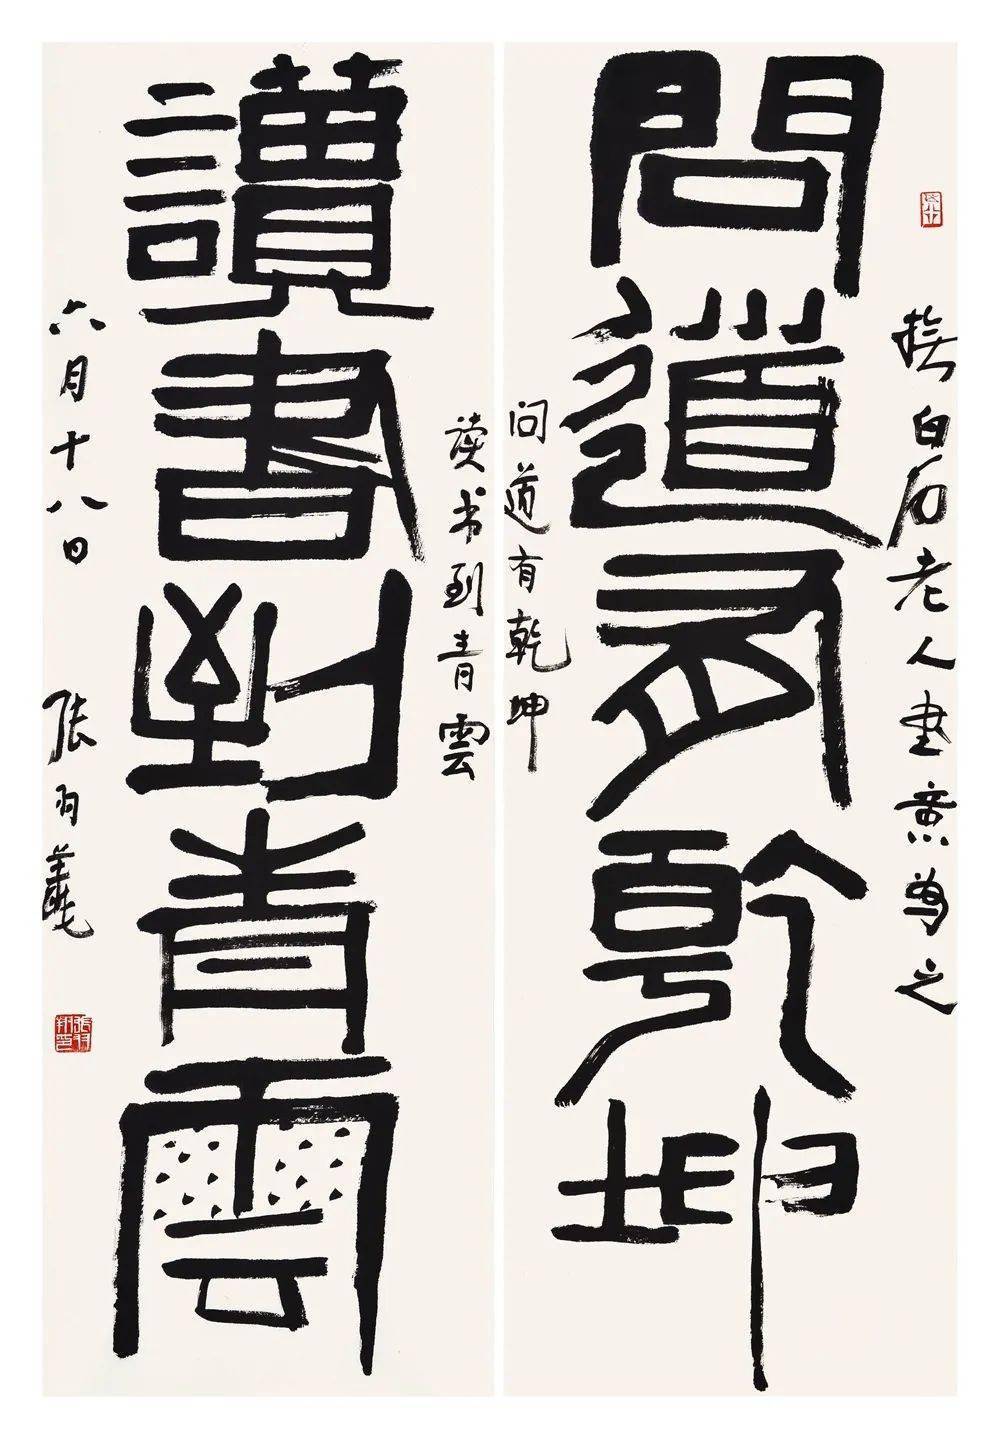 撫白石老人書意為之
問道有乾坤
问道有乾坤
读书到青雲
讀書到青雲
六月十八日 张羽翔